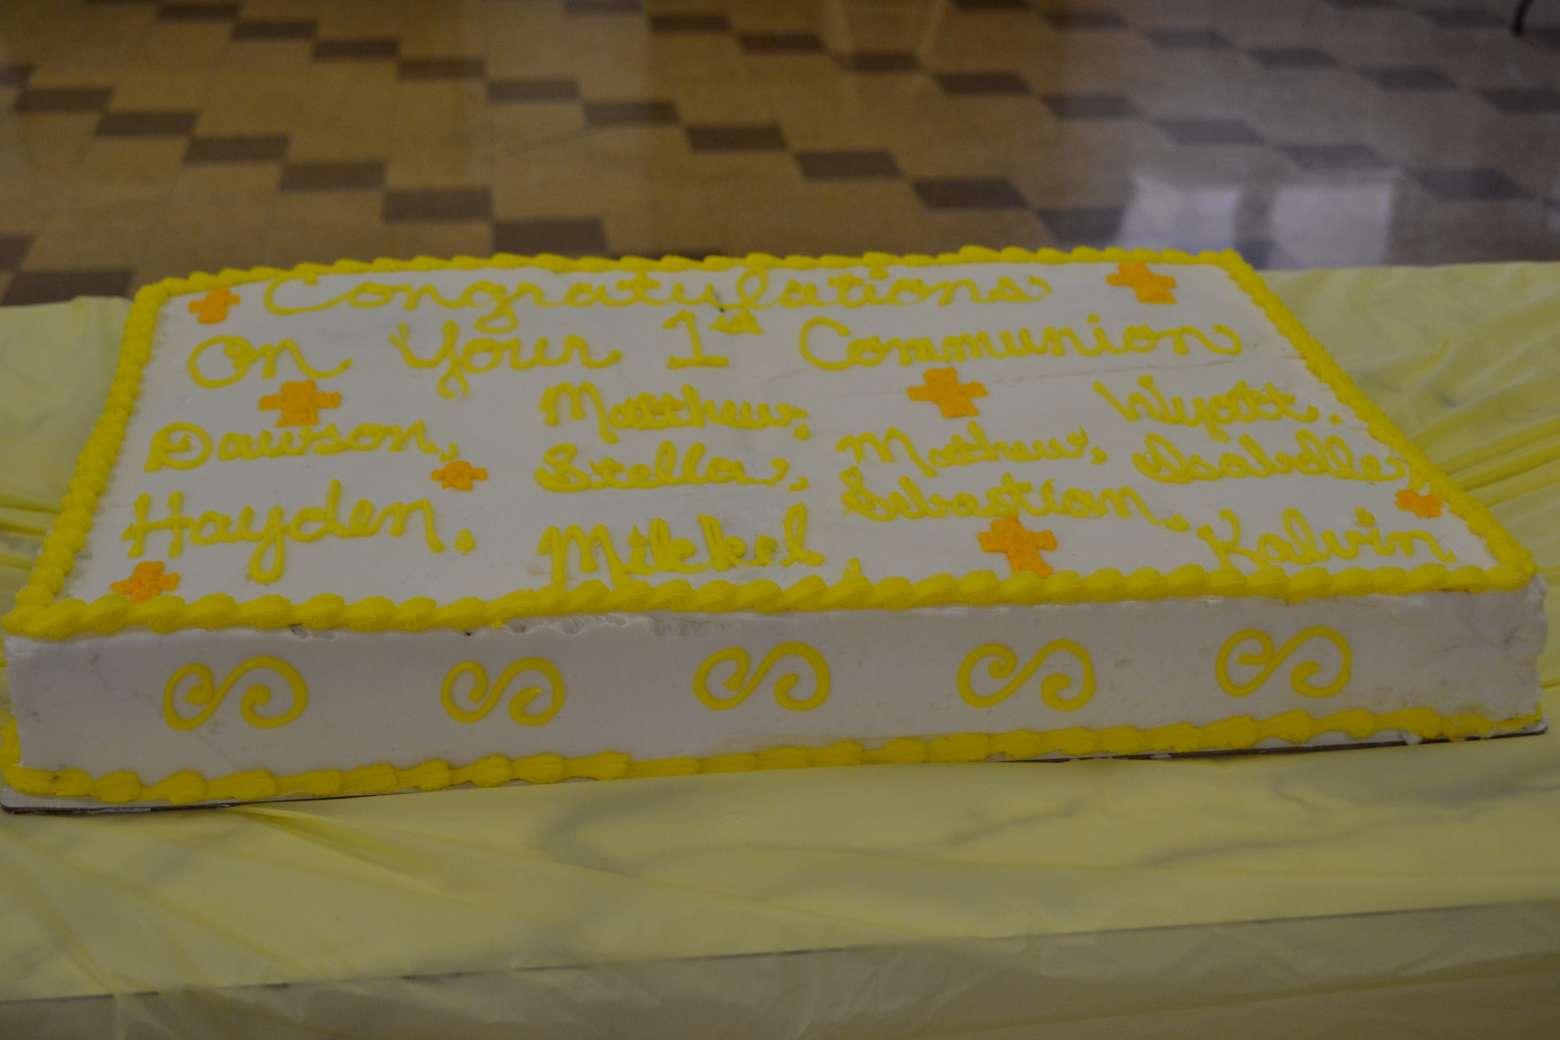 Congratulations
On Your 1st Communion
Dawson,
Hayden,
Matthew,
Stella,
Mikkel,
Mathew,
Sebastian,
Wyatt,
Isabelle,
Kalvin